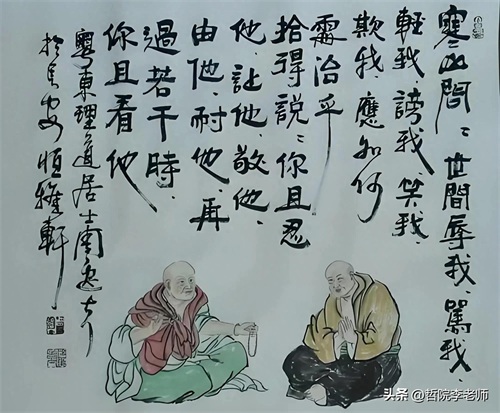 寒山問：世間辱我、罵我、
輕我、謗我、笑我、
欺我、應如何
處治乎
拾得説：你且忍
他、讓他、敬他、
由他、耐他、再
過若干時、
你且看他
粵東理道居士
於 恒雅軒
头条 @哲院李老师